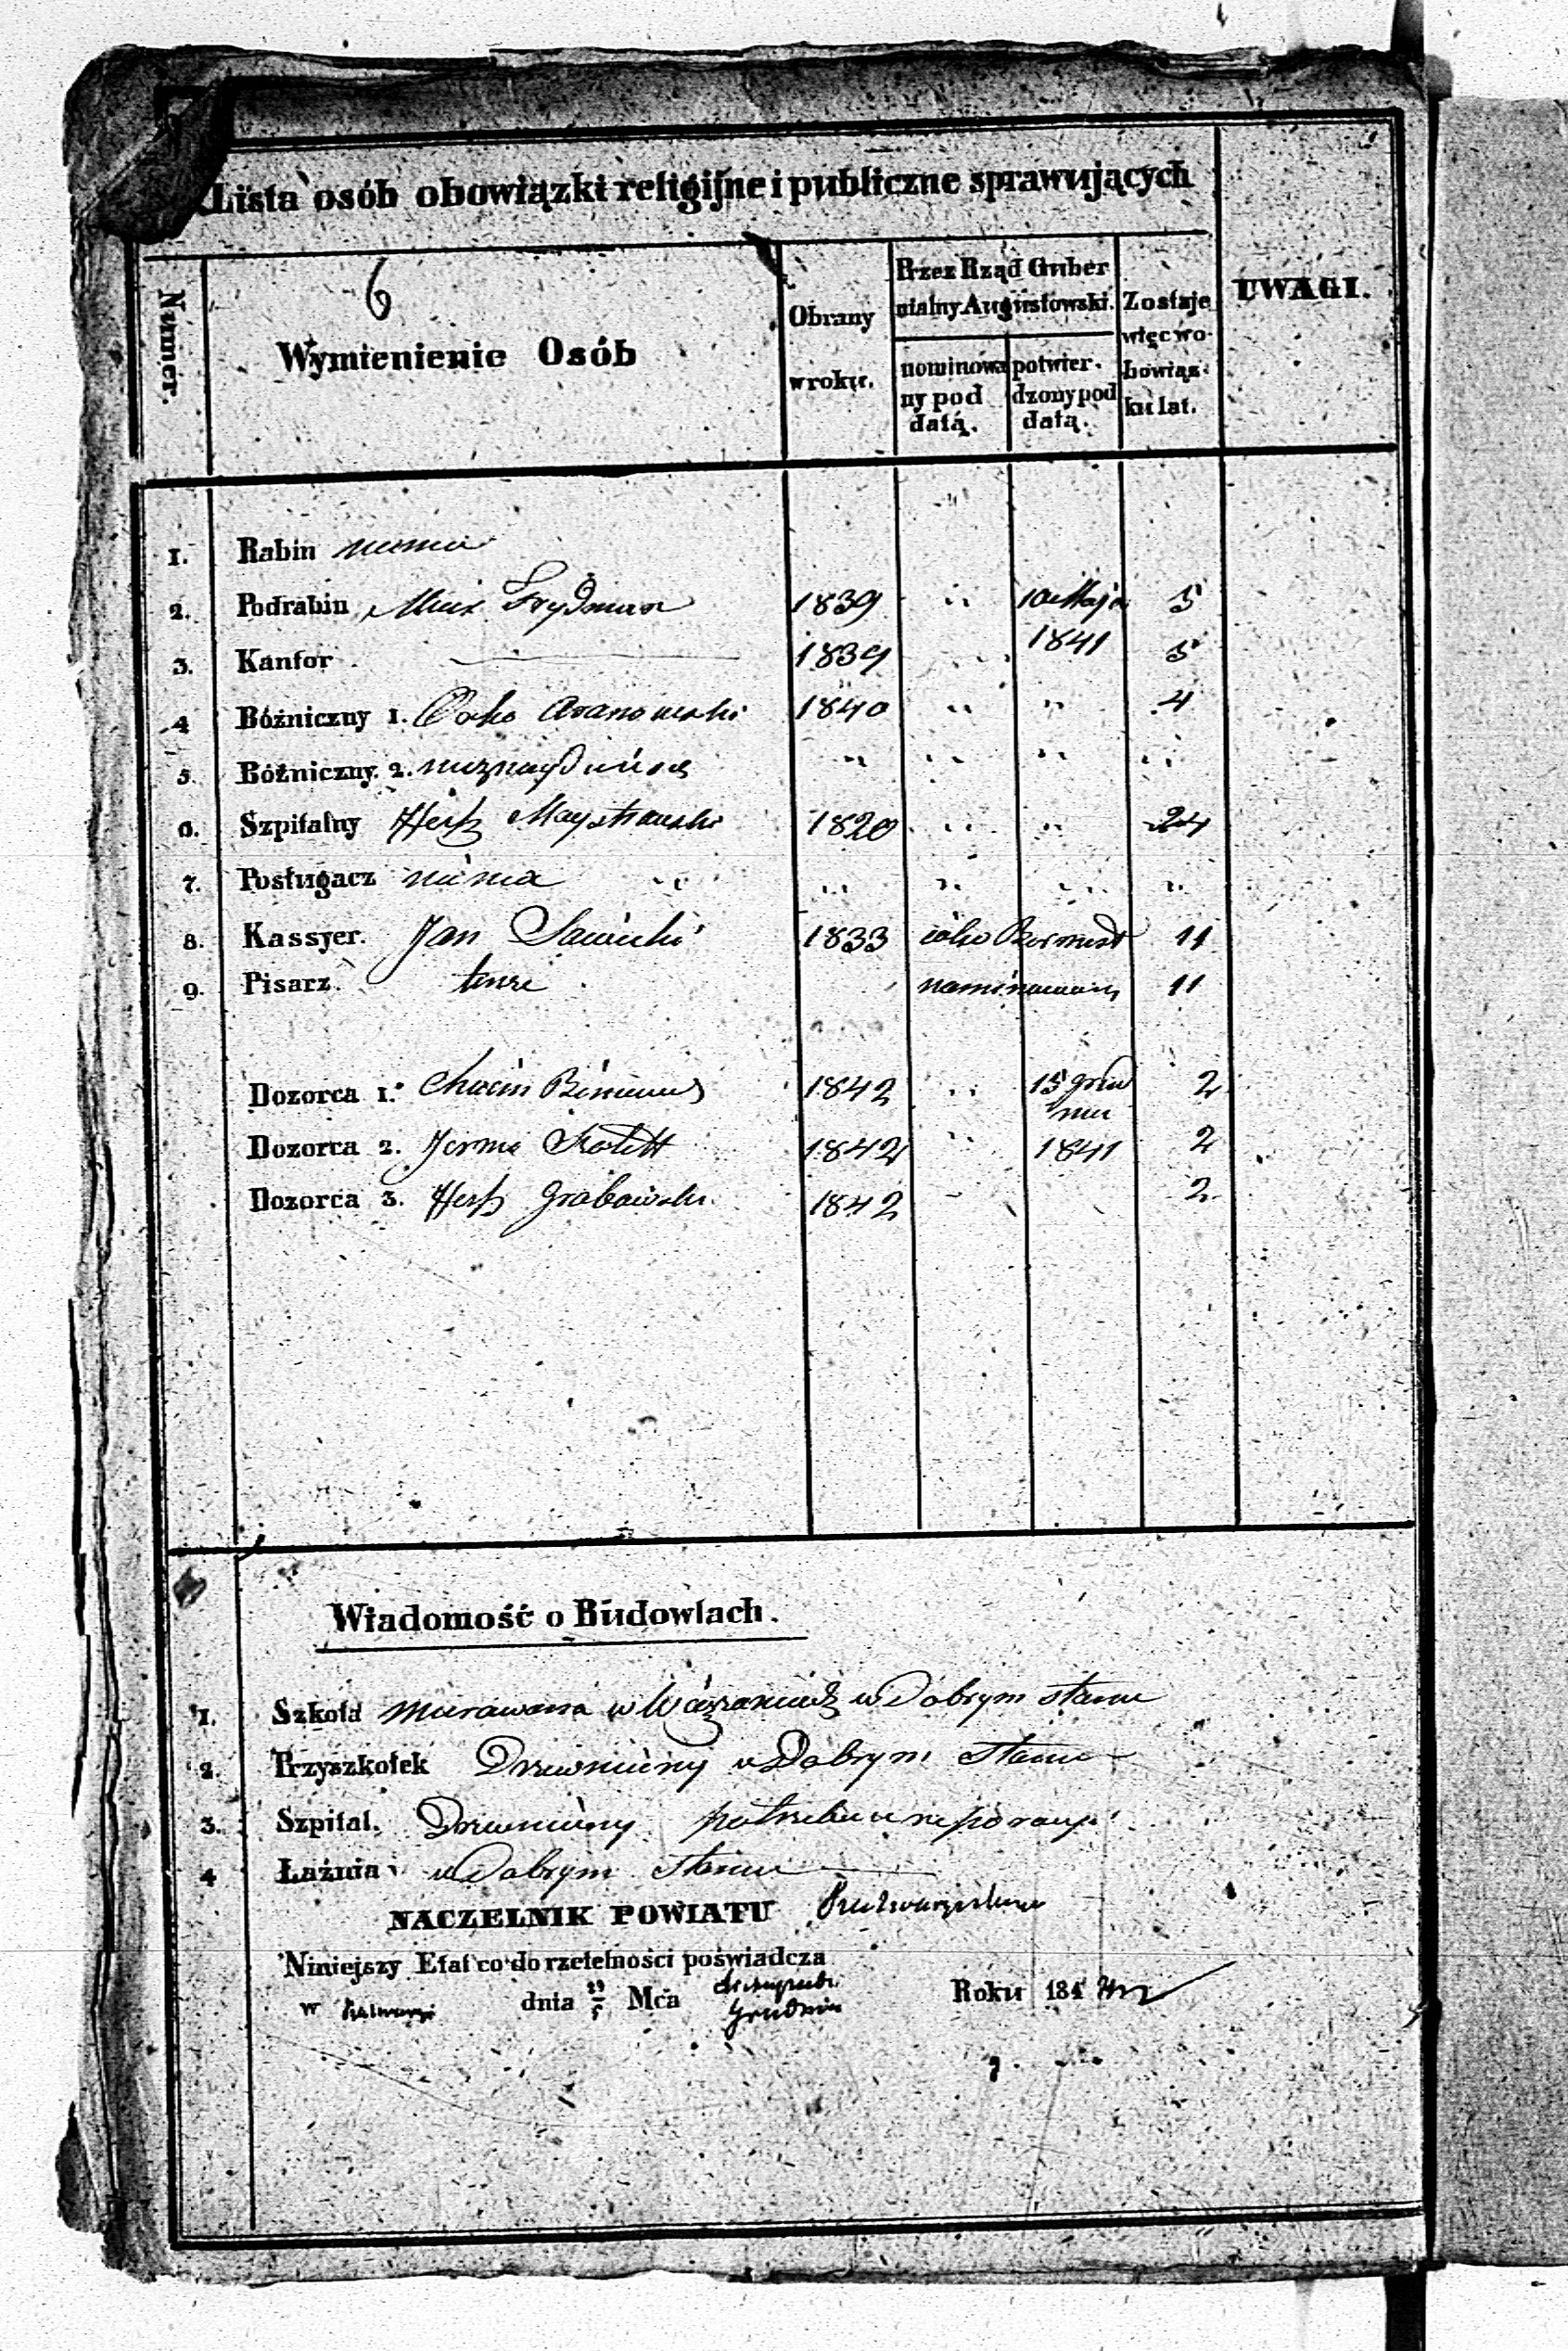 Lista osób obowiązki religijne i publiczne sprawujących
Numer.
6
Wymienienie Osób
Obrany w roku.
Przez Rząd Gubernialny Augustowski.
nominowany pod datą.
potwierdzony pod datą.
Zostaje więc w obowiązku lat.
UWAGI.
1. Rabin niema
2. Podrabin Frydman 1839 " 10 Maja 5
3. Kantor — 1839 " 1841 5
4 Bóżniczny 1. Aranowski 1840 " " 4
5. Bóżniczny 2. nieznayduie się " " " "
6. Szpitalny Hersz 1820 " " 24
7. Posługacz niema " " " "
8. Kassyer. Jan Sawicki 1833 iako Burmistrz 11
9. Pisarz. tenże nominowany 11
Dozorca 1. Chaim 1842 " 15 Grudnia 2
Dozorca 2. 1842 " 1841 2
Dozorca 3. Hersz Grabowski 1842 - 2
Wiadomość o Budowlach.
1. Szkoła murowana w dobrym stanie
2. Przyszkołek Drewniany w Dobrym Stanie
3. Szpital. Drewniany potrzebuie reparacyi
4 Łaźnia w Dobrym Stanie
NACZELNIK POWIATU
Niniejszy Etat co do rzetelności poświadcza
w dnia Mca Grudnia Roku 184